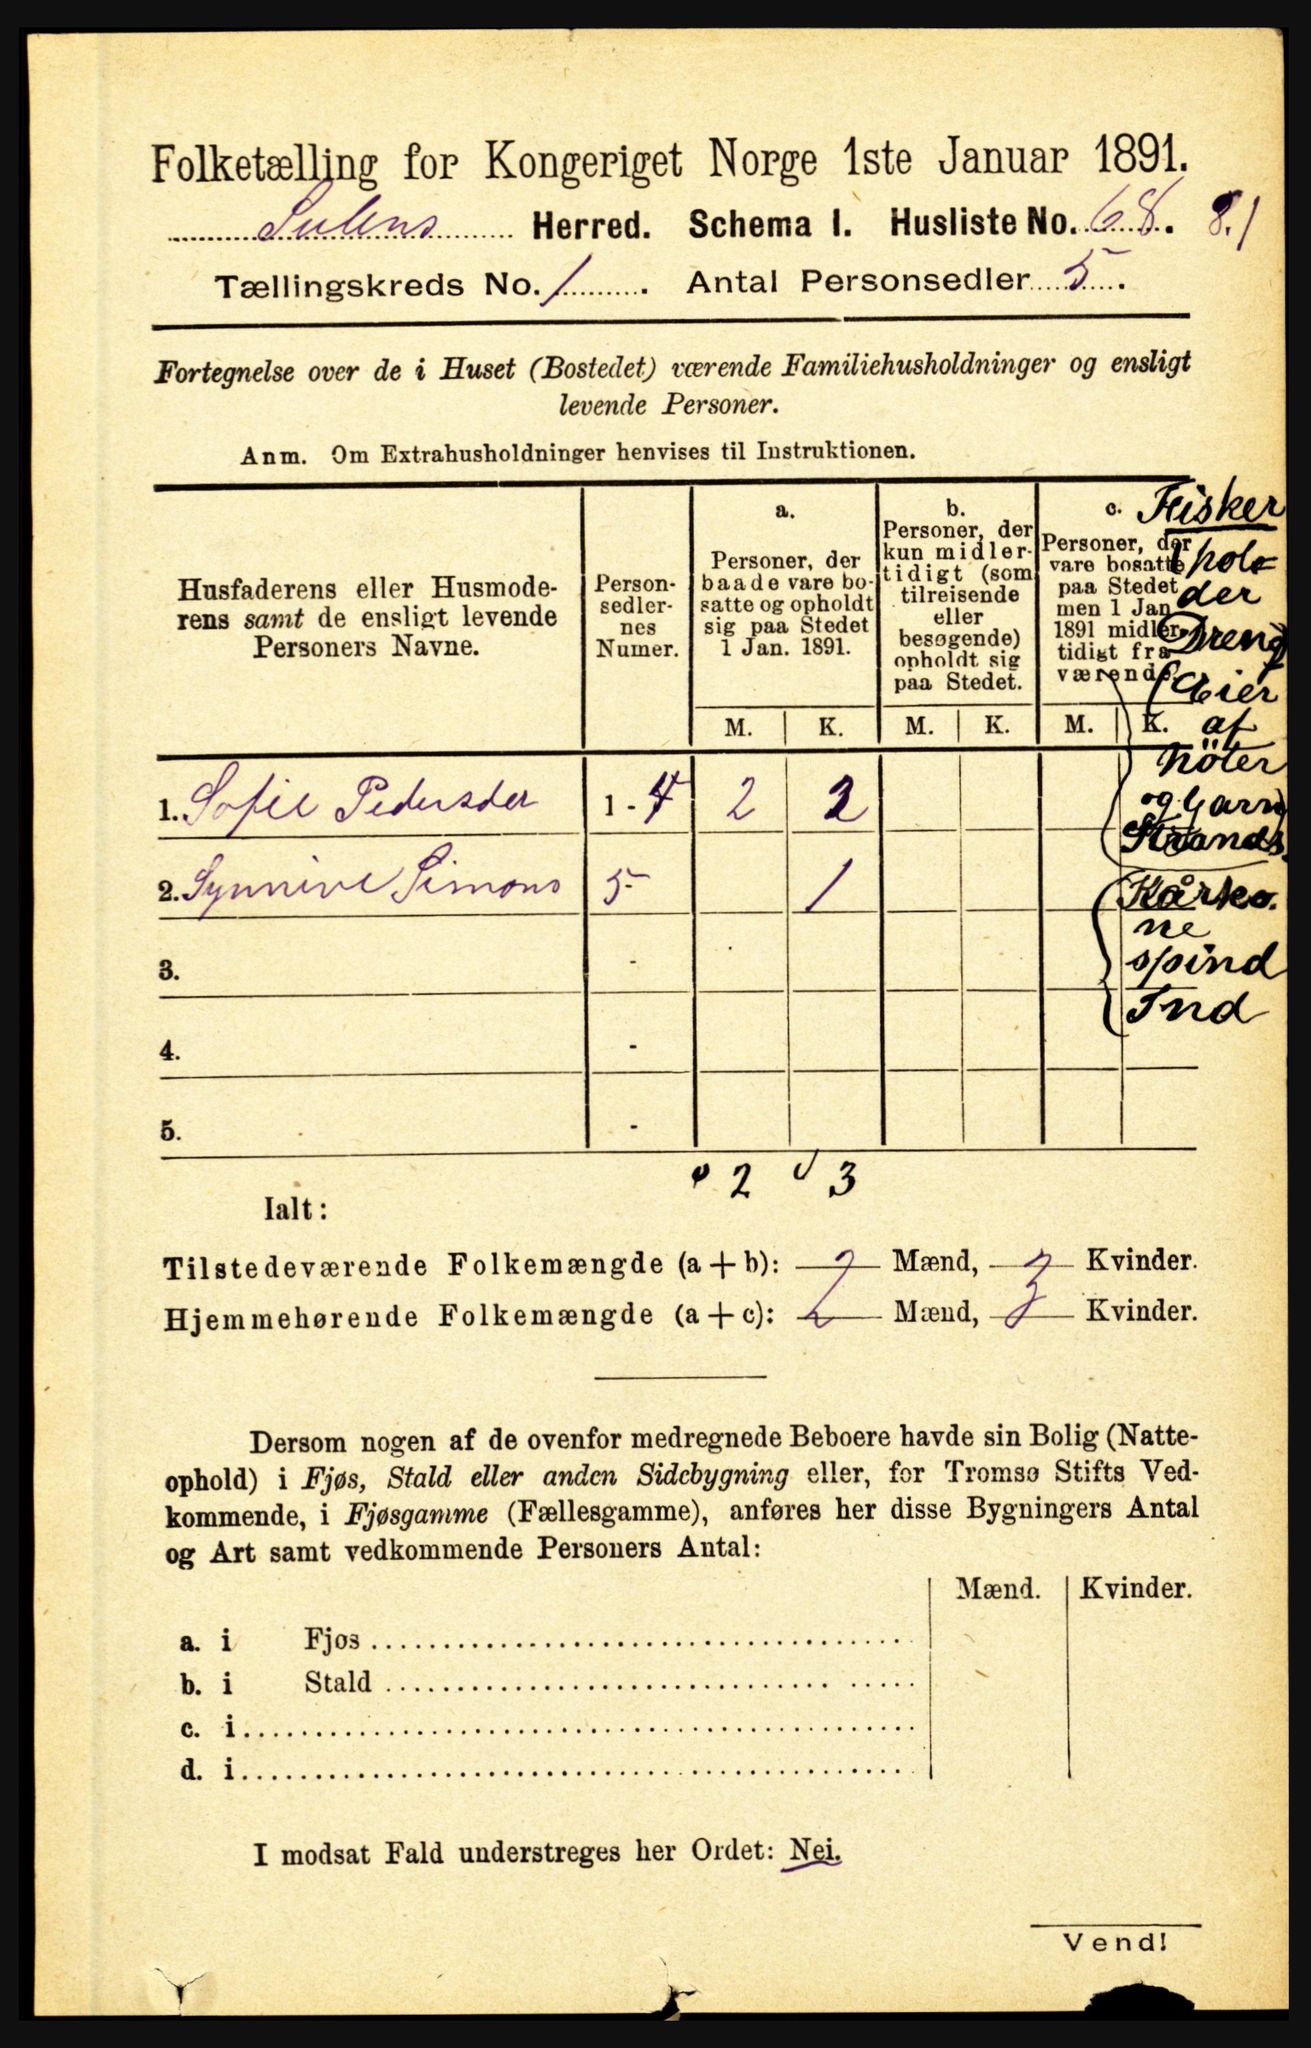 Folketælling for Kongeriget Norge 1ste Januar 1891.
Sulens Herred. Schema I. Husliste No. 68. 8.1
Tællingskreds No. 1. Antal Personsedler 5.
Fortegnelse over de i Huset (Bostedet) værende Familiehusholdninger og ensligt
levende Personer.
Anm. Om Extrahusholdninger henvises til Instruktionen.
Husfaderens eller Husmode-
rens samt de ensligt levende
Personers Navne.
Person-
sedler-
nes
Numer.
a.
Personer, der
baade vare bo-
satte og opholdt
sig paa Stedet
1 Jan. 1891.
b.
Personer, der
kun midler-
tidigt (som
tilreisende
eller
besøgende)
opholdt sig
paa Stedet.
c.
Personer, der
vare bosatte
paa Stedet
men 1 Jan.
1891 midler-
tidigt fra
værende.
M. K. M. K. M. K.
Fisker
der
Dreng
(Eier
af
Nöter
og Garn)
Strands.
Kårko.
ne
spind
Ind
1. Sofie Pedersder 1 - 4 2 2
2. Synnive Simons 5 - 1
3. -
4. -
5. -
2 3
Ialt:
Tilstedeværende Folkemængde (a + b): 2 Mænd, 3 Kvinder.
Hjemmehørende Folkemængde (a + c): 2 Mænd, 3 Kvinder.
Dersom nogen af de ovenfor medregnede Beboere havde sin Bolig (Natte-
ophold) i Fjøs, Stald eller anden Sidebygning eller, for Tromsø Stifts Ved-
kommende, i Fjøsgamme (Fællesgamme), anføres her disse Bygningers Antal
og Art samt vedkommende Personers Antal:
Mænd. Kvinder.
a. i Fjøs
b. i Stald
c. i
d. i
I modsat Fald understreges her Ordet: Nei.
Vend!